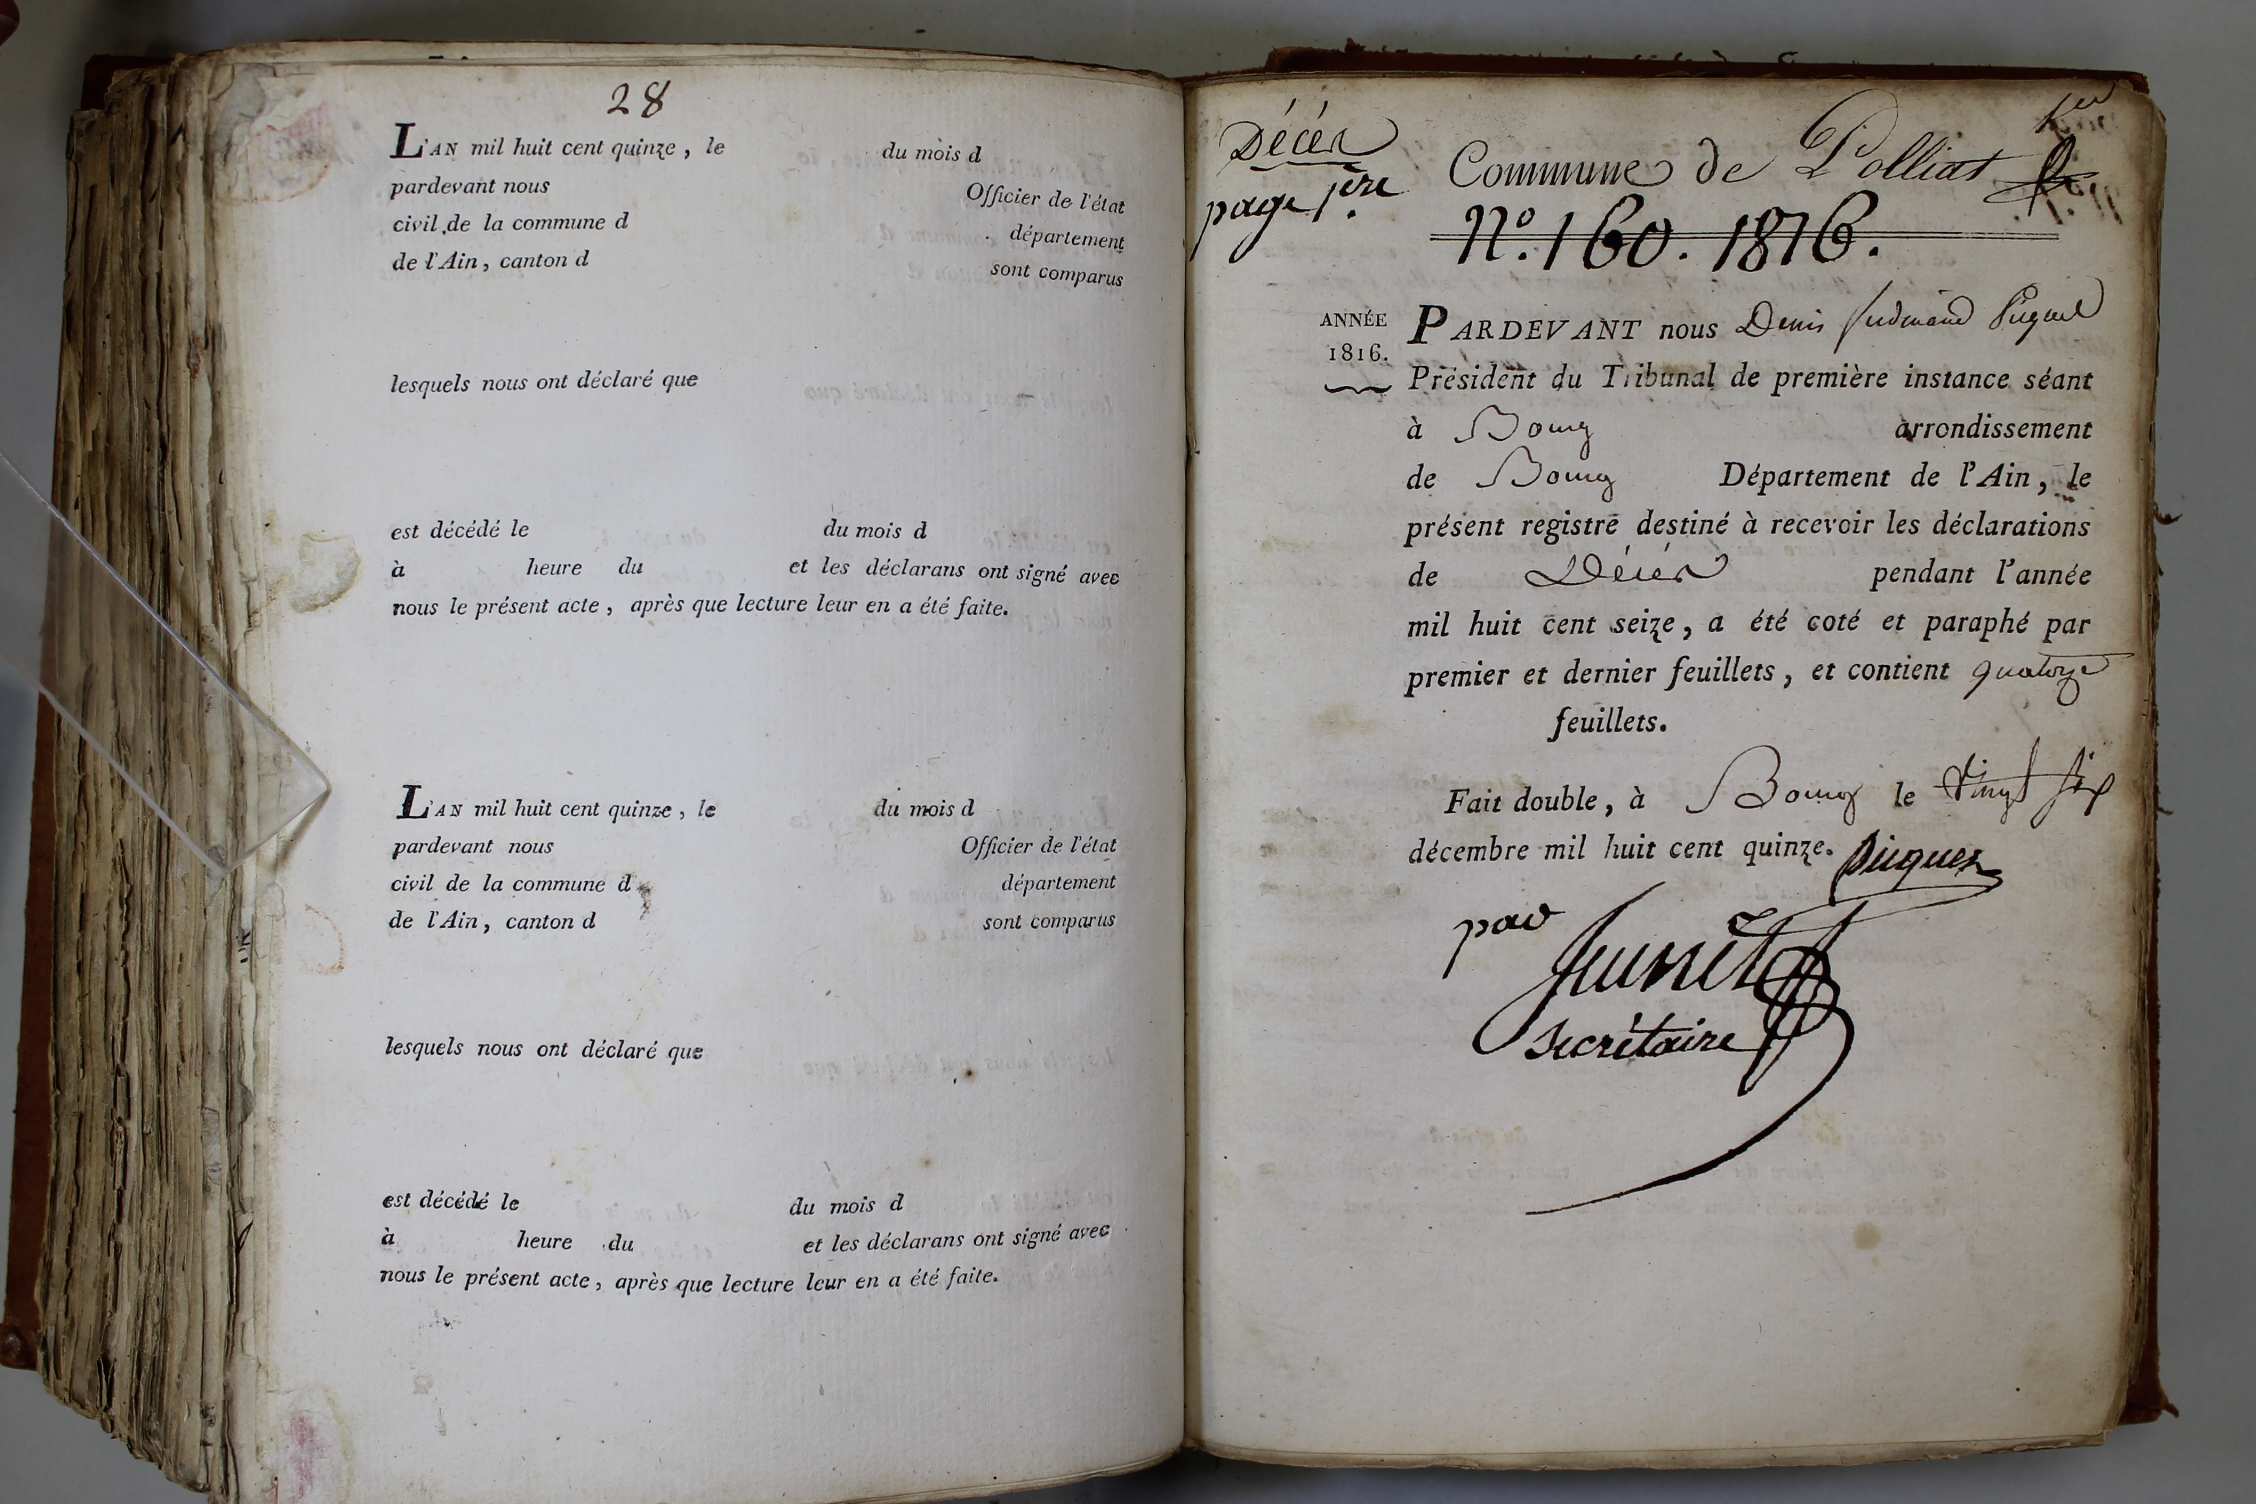 28
L'AN mil huit cent quinze, le du mois d
pardevant nous Officier de l'état
civil de la commune d département
de l'Ain, canton d sont comparus
lesquels nous ont déclaré que
est décédé le du mois d
à heure du et les déclarans ont signé avec
nous le présent acte, après que lecture leur en a été faite.
L'AN mil huit cent quinze, le du mois d
pardevant nous Officier de l'état
civil de la commune d département
de l'Ain, canton d sont comparus
lesquels nous ont déclaré que
est décédé le du mois d
à heure du et les déclarans ont signé avec
nous le présent acte, après que lecture leur en a été faite.
Décès
page 1ère
1er
Commune de Polliat
N°. 160. 1816.
ANNÉE
1816.
PARDEVANT nous Denis ferdinand Piquet
Président du Tribunal de première instance séant
à Bourg arrondissement
de Bourg Département de l'Ain, le
présent registre destiné à recevoir les déclarations
de Décès pendant l'année
mil huit cent seize, a été coté et paraphé par
premier et dernier feuillets, et contient quatorze
feuillets.
Fait double, à Bourg le vingt six
décembre mil huit cent quinze. Piquet
par
secrétaire